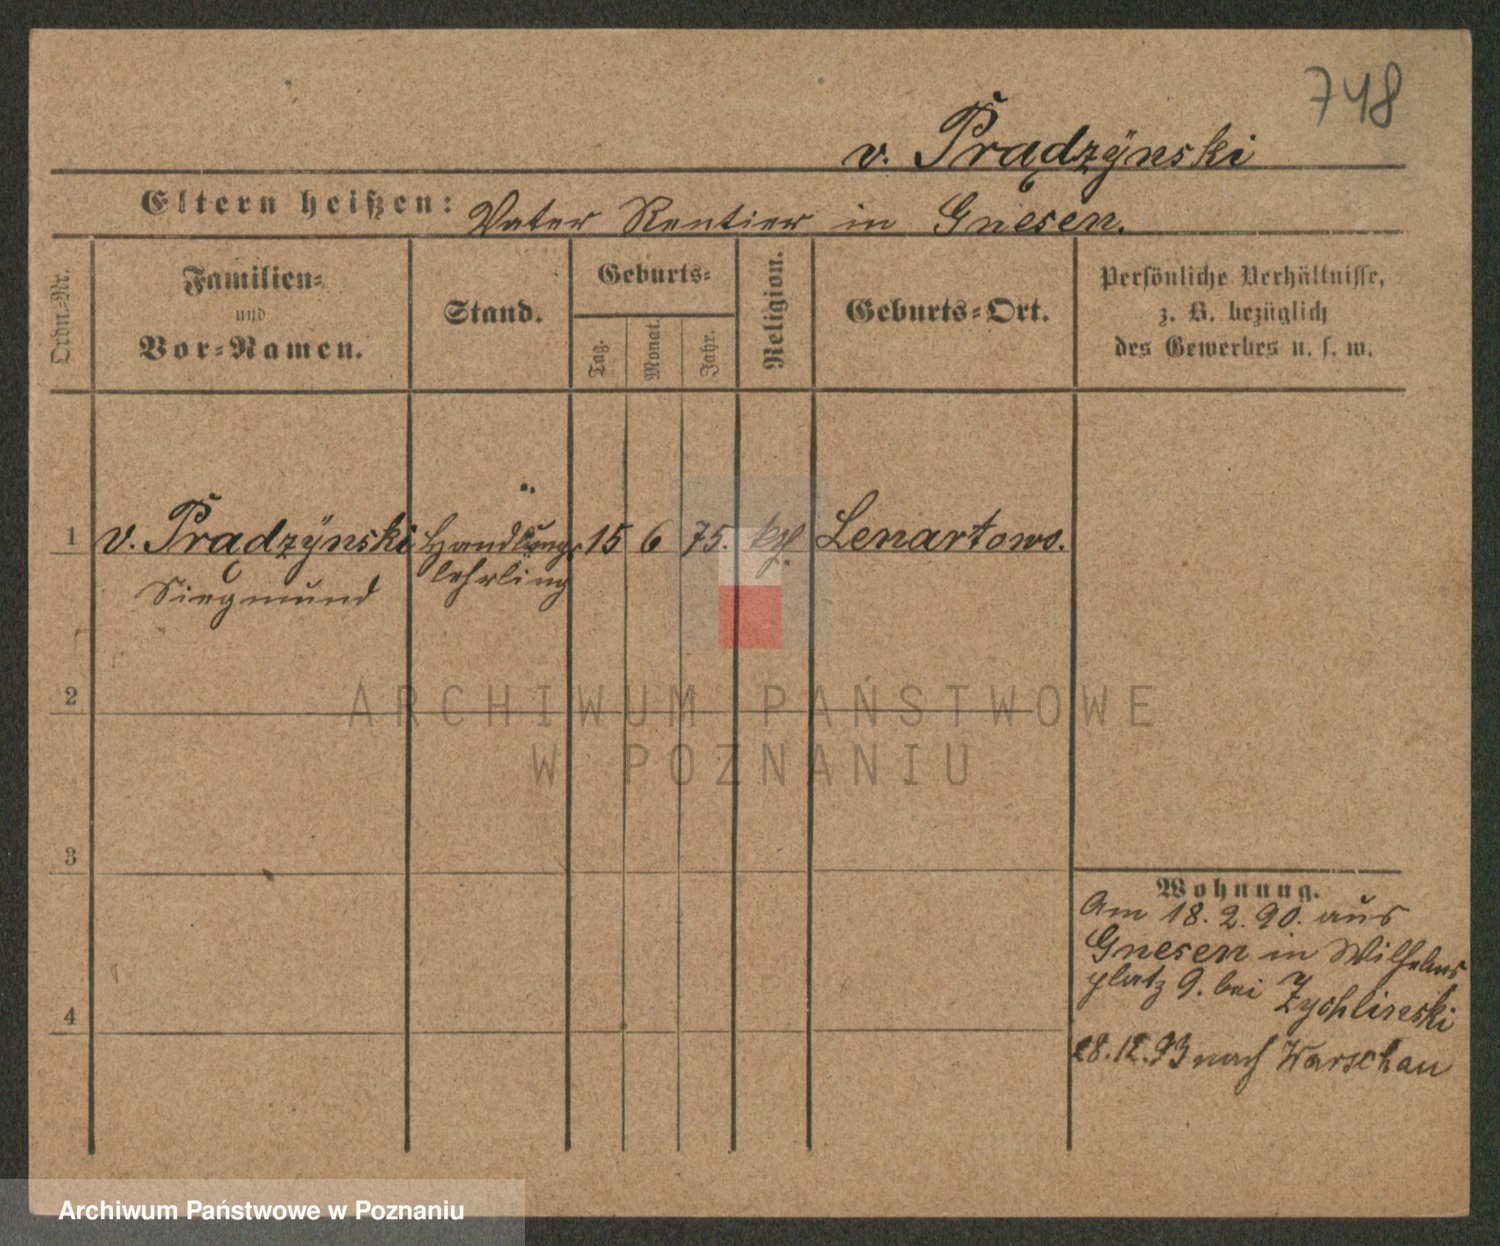 748
v. Prądzÿnski
Eltern heißen: Vater Rentier in Gnesen.
Ordn.-Nr.
Familien-
und
Vor-Namen.
Stand.
Geburts-
Tag.
Monat.
Jahr.
Religion.
Geburts-Ort.
Persönliche Verhältnisse,
z. B. bezüglich
des Gewerbes u. s. w.
1 v. Prądzÿnski Handlungs 15 6 75. kth. Lenartowo.
lehrling
Siegmund
2
3
4
Wohnung.
Am 18. 2. 90. aus
Gnesen in Wilhelms
platz 9. bei Zychlinski
28.12.93 nach Warschau
ARCHIWUM PAŃSTWOWE
W POZNANIU
Archiwum Państwowe w Poznaniu